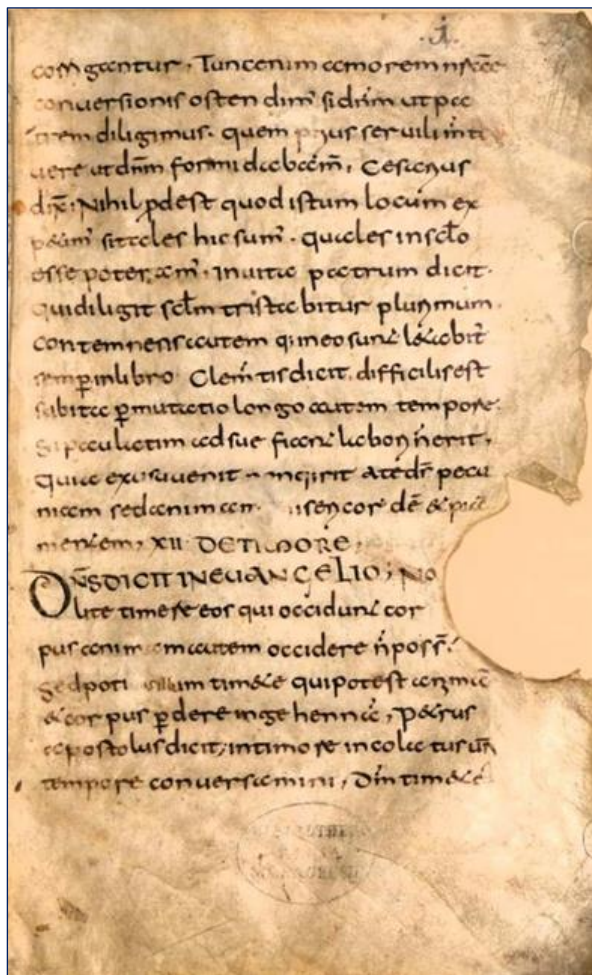 Tunc enim amorem nrae
conversionis ostendim̄ si dn̄m ut pa
trem diligimus. quem prius servili
uere ut dn̄m formidabam̄, Cesarius
dix̄; Nihil p̄dest quod istum locum ex
petim̄ si tales hic sum̄. quales in scl̄o
esse In uita patrum dicit.
qui diligit scl̄m tristabitur plurimum.
contemnens autem q in eo sunt letabit̄
semp̄ in libro Clem̄tis dicit. difficilis est
subita p̄mutatio longo autem tempore.
si paulatim adsuefiant labor n̄ erit,
quia ex usu uenit pecu
niam sed anim
mentem, XII DE TIMORE,
DN̄S DICIT IN EVANGELIO; NO
lite timere eos qui occidunt cor
pus animam autem occidere n̄ poss̄.
sed poti illum timete qui potest animā
et corpus p̄dere in gehenna, Petrus
apostolus dicit, in timore incolatus ur̄i
tempore conversamini, Dm̄ timete